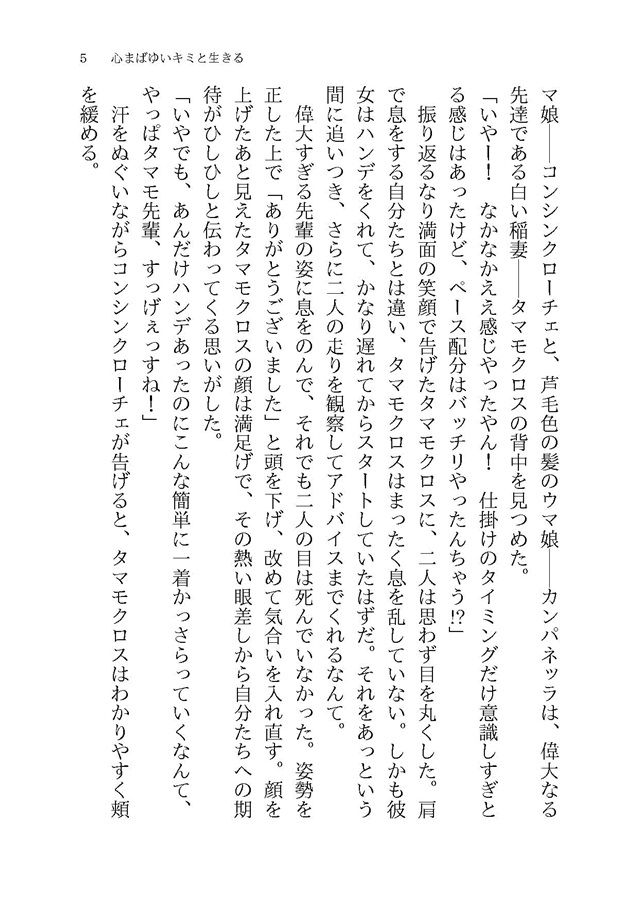 5　心まばゆいキミと生きる
マ娘――コンシンクローチェと、芦毛色の髪のウマ娘――カンパネッラは、偉大なる
先達である白い稲妻――タマモクロスの背中を見つめた。
「いやー！　なかなかええ感じやったやん！　仕掛けのタイミングだけ意識しすぎと
る感じはあったけど、ペース配分はバッチリやったんちゃう!?」
振り返るなり満面の笑顔で告げたタマモクロスに、二人は思わず目を丸くした。肩
で息をする自分たちとは違い、タマモクロスはまったく息を乱していない。しかも彼
女はハンデをくれて、かなり遅れてからスタートしていたはずだ。それをあっという
間に追いつき、さらに二人の走りを観察してアドバイスまでくれるなんて。
偉大すぎる先輩の姿に息をのんで、それでも二人の目は死んでいなかった。姿勢を
正した上で「ありがとうございました」と頭を下げ、改めて気合いを入れ直す。顔を
上げたあと見えたタマモクロスの顔は満足げで、その熱い眼差しから自分たちへの期
待がひしひしと伝わってくる思いがした。
「いやでも、あんだけハンデあったのにこんな簡単に一着かっさらっていくなんて、
やっぱタマモ先輩、すっげぇっすね！」
汗をぬぐいながらコンシンクローチェが告げると、タマモクロスはわかりやすく頬
を緩める。